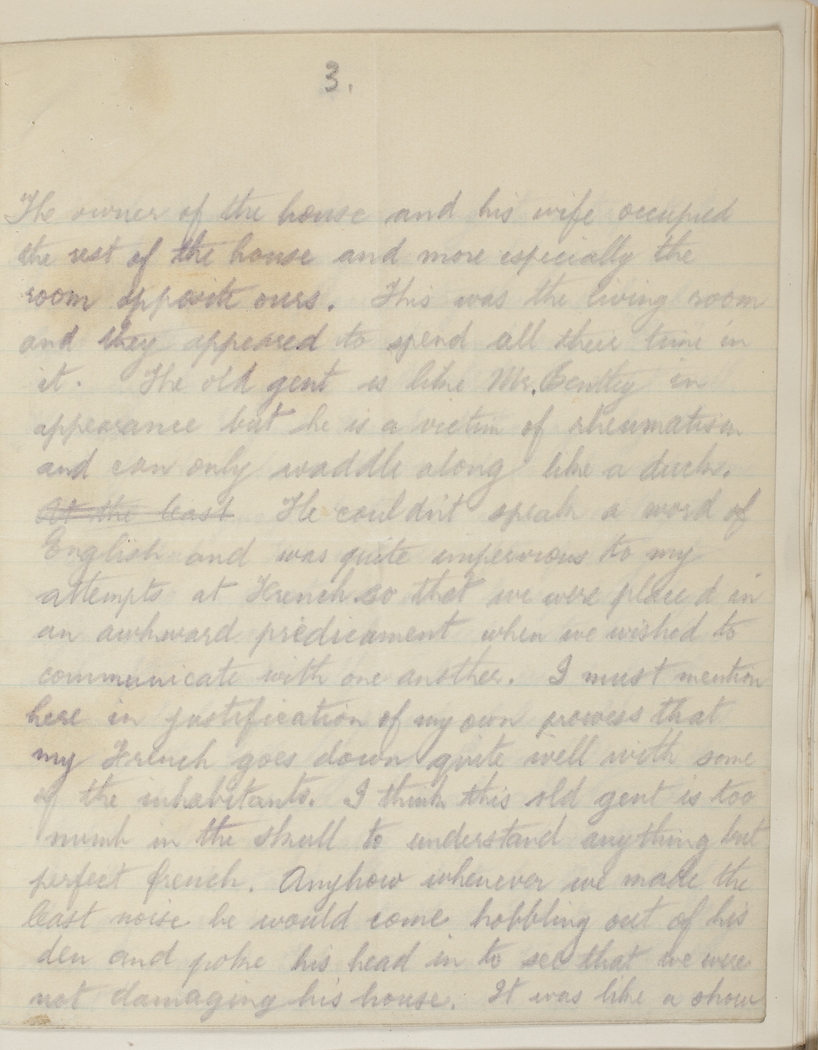 3.
The owner of the house and his wife occupied
the rest of the house and more especially the
room opposite ours. This was the living room
and they appeared to spend all their time in
it. The old gent is like Mr. Bentley in
appearance but he is a victim of rheumatism
and can only waddle along like a duck.
At the least He couldn't speak a word of
English and was quite impervious to my
attempts at French so that we were placed in
an awkward predicament when we wished to
communicate with one another. I must mention
here in justification of my own prowess that
my French goes down quite well with some
of the inhabitants. I think this old gent is too
numb in the skull to understand anything but
perfect french. Anyhow whenever we made the
least noise he would come hobbling out of his
den and poke his head in to see that we were
not damaging his house. It was like a show